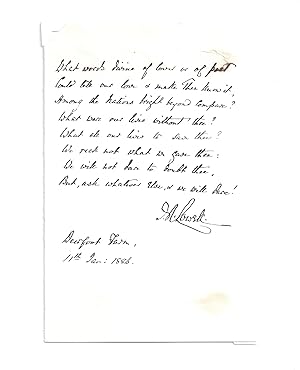 What words divine of lover or of poet
Could tell our love & make thee know it,
Among the Nations bright beyond compare?
What were our lives without thee?
What all our lives to save thee?
We reck not what we gave thee:
We will not dare to doubt thee,
But, ask whatever else, & we will dare!
J.R. Lowell
Deerfoot Farm,
11th Jan: 1886.